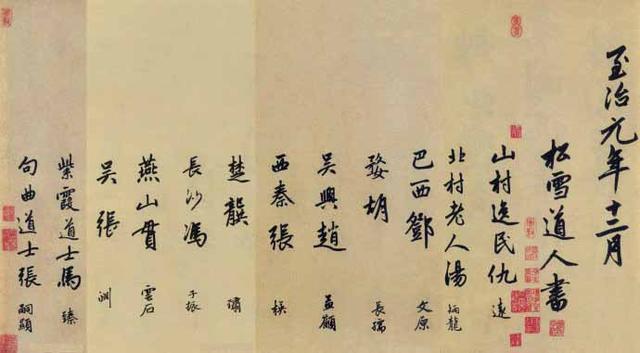 至治元年十二月
松雪道人書
山村逸民仇遠
北村老人湯炳龍
巴西鄧文原
婺胡長孺
吳興趙孟頫
西秦張楧
楚龔璛
長沙馮子振
燕山貫雲石
吳張淵
紫霞道士馬臻
句曲道士張嗣顯